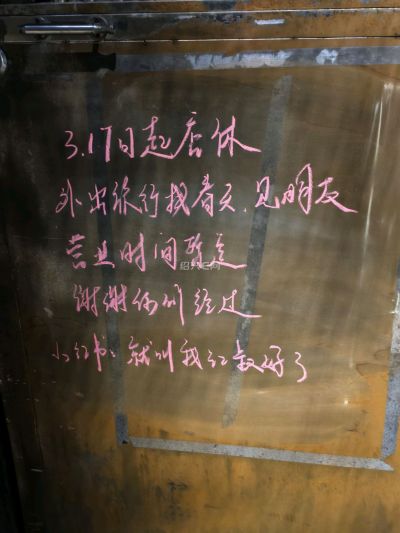 3.17日起店休
外出旅行找春天.见朋友
营业时间暂定
谢谢你们经过
小红书:就叫我红叔好了
绍兴E网